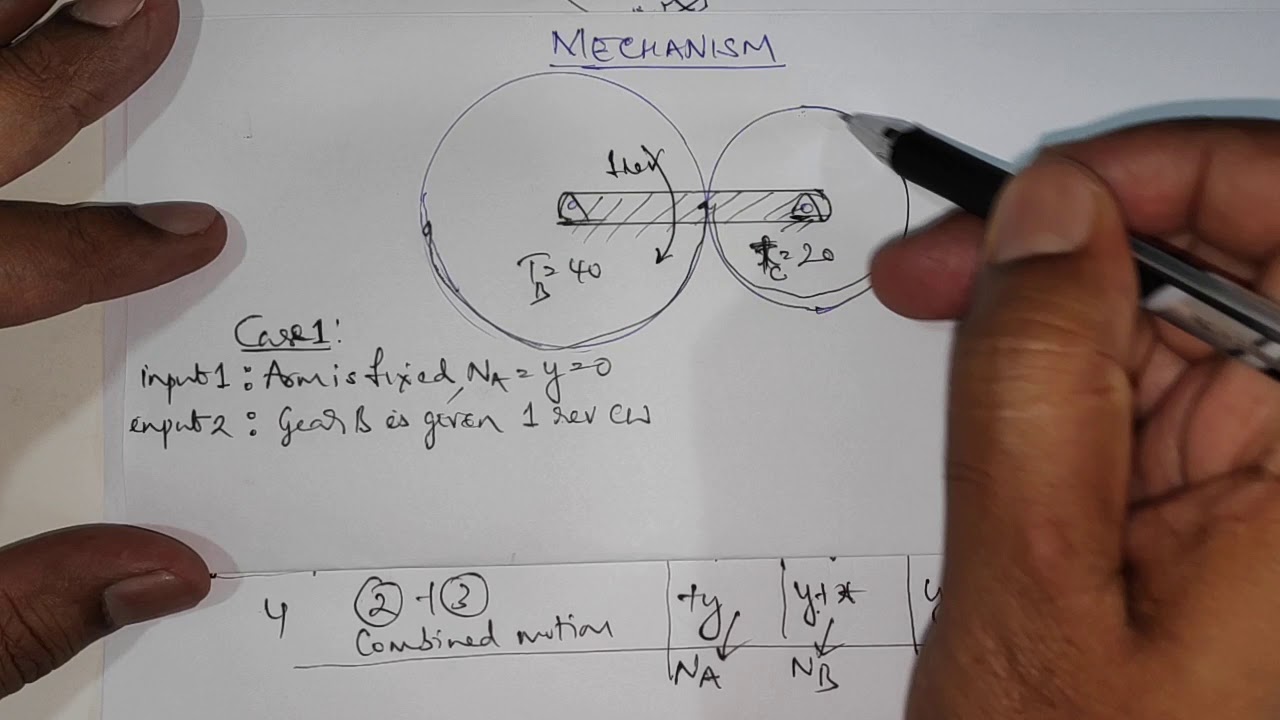 MECHANISM
1rev
T_B = 40
T_C = 20
Case1:
input1 : Arm is fixed, N_A = y = 0
input2 : Gear B is given 1 rev CW
4 ② + ③ +y y+x y
Combined motion
N_A N_B